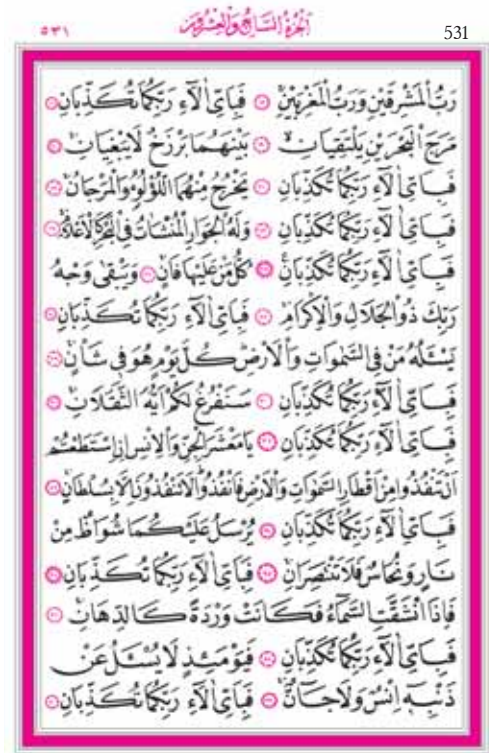 ٥٣١ اَلْجُزْءُ السَّابِعُ وَالْعِشْرُونَ 531
رَبُّ الْمَشْرِقَيْنِ وَرَبُّ الْمَغْرِبَيْنِۚ ﴿١٧﴾ فَبِاَيِّ اٰلَٓاءِ رَبِّكُمَا تُكَذِّبَانِ ﴿١٨﴾
مَرَجَ الْبَحْرَيْنِ يَلْتَقِيَانِۙ ﴿١٩﴾ بَيْنَهُمَا بَرْزَخٌ لَا يَبْغِيَانِۚ ﴿٢٠﴾
فَبِاَيِّ اٰلَٓاءِ رَبِّكُمَا تُكَذِّبَانِ ﴿٢١﴾ يَخْرُجُ مِنْهُمَا اللُّؤْلُؤُ۬ وَالْمَرْجَانُۚ ﴿٢٢﴾
فَبِاَيِّ اٰلَٓاءِ رَبِّكُمَا تُكَذِّبَانِ ﴿٢٣﴾ وَلَهُ الْجَوَارِ الْمُنْشَاٰتُ فِي الْبَحْرِ كَالْاَعْلَامِۚ ﴿٢٤﴾
فَبِاَيِّ اٰلَٓاءِ رَبِّكُمَا تُكَذِّبَانِ۟ ﴿٢٥﴾ كُلُّ مَنْ عَلَيْهَا فَانٍۚ ﴿٢٦﴾ وَيَبْقٰى وَجْهُ
رَبِّكَ ذُو الْجَلَالِ وَالْاِكْرَامِۚ ﴿٢٧﴾ فَبِاَيِّ اٰلَٓاءِ رَبِّكُمَا تُكَذِّبَانِ ﴿٢٨﴾
يَسْـَٔلُهُ مَنْ فِي السَّمٰوَاتِ وَالْاَرْضِۜ كُلَّ يَوْمٍ هُوَ فِي شَأْنٍۚ ﴿٢٩﴾
فَبِاَيِّ اٰلَٓاءِ رَبِّكُمَا تُكَذِّبَانِ ﴿٣٠﴾ سَنَفْرُغُ لَكُمْ اَيُّهَ الثَّقَلَانِۚ ﴿٣١﴾
فَبِاَيِّ اٰلَٓاءِ رَبِّكُمَا تُكَذِّبَانِ ﴿٣٢﴾ يَا مَعْشَرَ الْجِنِّ وَالْاِنْسِ اِنِ اسْتَطَعْتُمْ
اَنْ تَنْفُذُوا مِنْ اَقْطَارِ السَّمٰوَاتِ وَالْاَرْضِ فَانْفُذُواۜ لَا تَنْفُذُونَ اِلَّا بِسُلْطَانٍۚ ﴿٣٣﴾
فَبِاَيِّ اٰلَٓاءِ رَبِّكُمَا تُكَذِّبَانِ ﴿٣٤﴾ يُرْسَلُ عَلَيْكُمَا شُوَاظٌ مِنْ
نَارٍ وَنُحَاسٌ فَلَا تَنْتَصِرَانِۚ ﴿٣٥﴾ فَبِاَيِّ اٰلَٓاءِ رَبِّكُمَا تُكَذِّبَانِ ﴿٣٦﴾
فَاِذَا انْشَقَّتِ السَّمَٓاءُ فَكَانَتْ وَرْدَةً كَالدِّهَانِۚ ﴿٣٧﴾
فَبِاَيِّ اٰلَٓاءِ رَبِّكُمَا تُكَذِّبَانِ ﴿٣٨﴾ فَيَوْمَئِذٍ لَا يُسْـَٔلُ عَنْ
ذَنْبِه۪ٓ اِنْسٌ وَلَا جَٓانٌّۚ ﴿٣٩﴾ فَبِاَيِّ اٰلَٓاءِ رَبِّكُمَا تُكَذِّبَانِ ﴿٤٠﴾